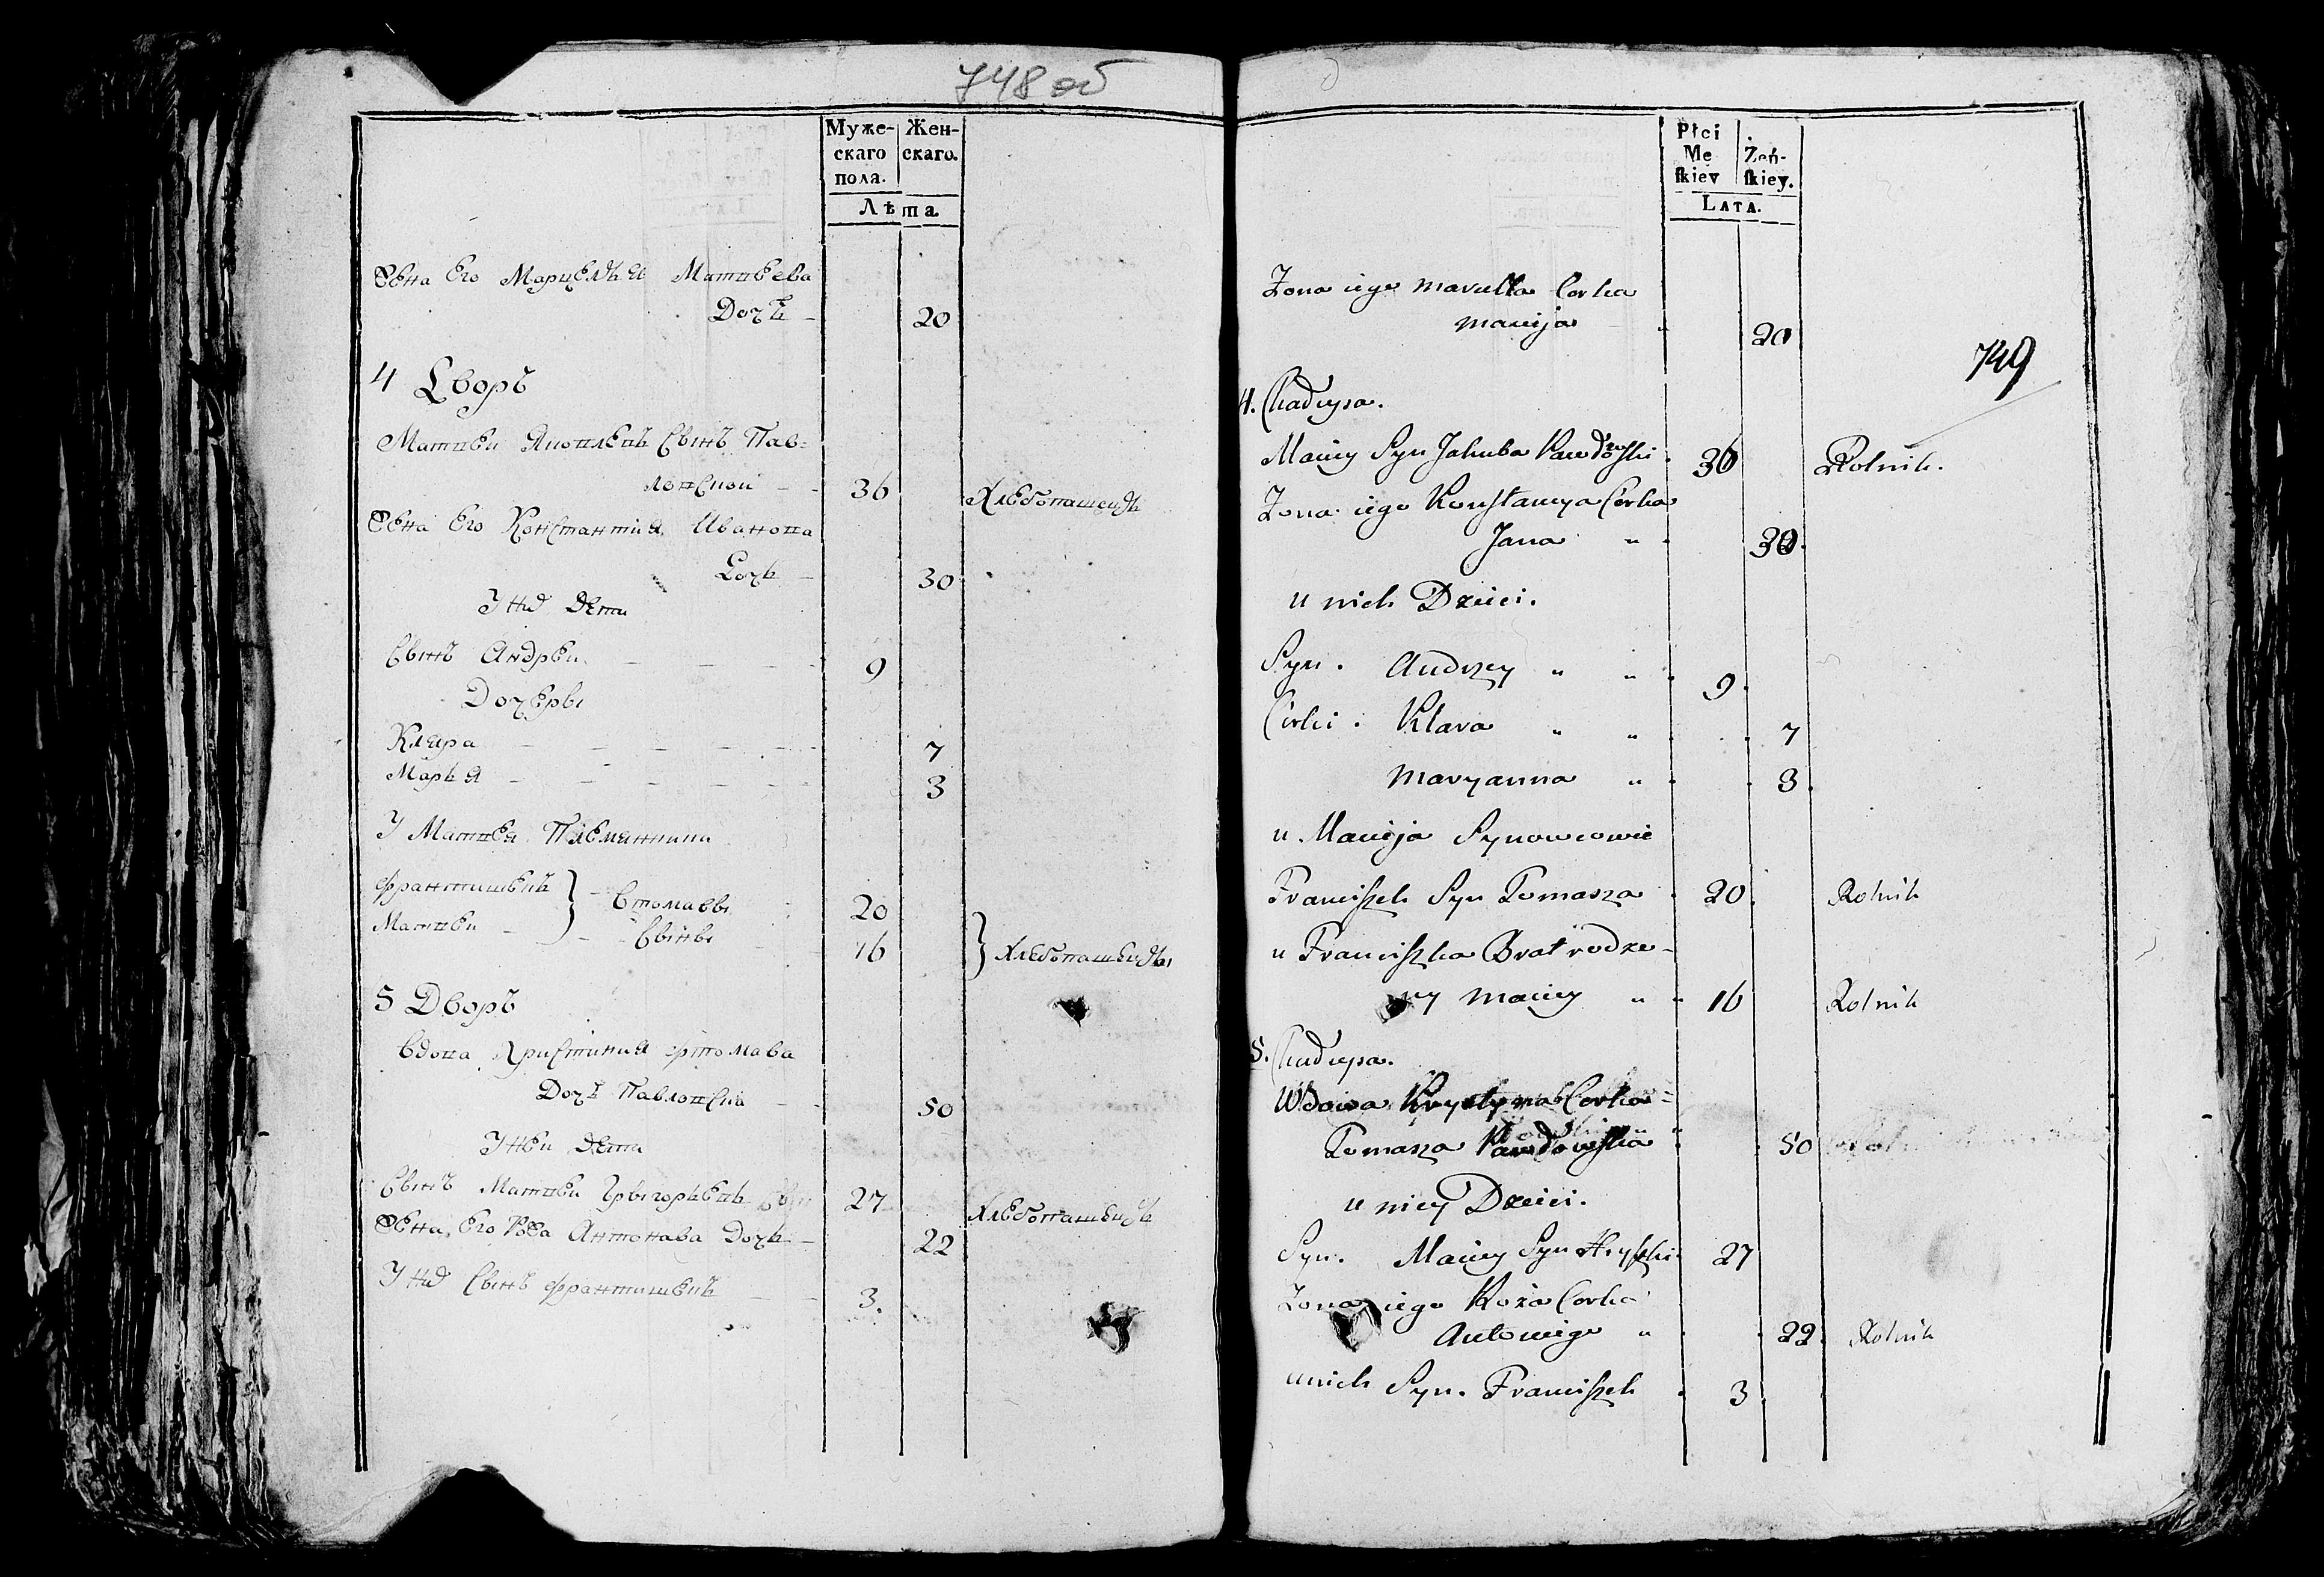 748 об
Муже-
скаго
пола.
Жен-
скаго.
Лѣта
Жена Его Марцелья Матвеева
Дочь 20
4 Дворъ
Матвеи Яковлевъ Сынъ Пав=
ловскои 36 Хлебопашецъ
Жена Его Константия Иванова
Дочь 30
У них дети
Сынъ Андреи 9
Дочеры
Клара 7
Марья 3
У Матвея Племянники
Франтишекъ } Стомавы 20
Матвеи Сыны 16 } Хлебопашецы
5 Дворъ
Вдова Христиния Томава
Дочъ Павловска 50
У неи дети
Сынъ Матвеи Грыгорьевъ Сын 27 Хлебопашецъ
Жена Его Роза Антонава Дочь 22
У них Сынъ Франтишекъ 3.
Płci
Mę
ſkiey
Żeń-
ſkiey.
LATA.
749
Zona iego Marcella Corka
Macieja 20
4. Chałupa.
Maciey Syn Jakuba Pawłowſki 36 Rolnik.
Zona iego Konſtancya Córka
Jana „ 30.
u nich Dzieci.
Syn. Andrzey „ „ 9.
Córki. Klara „ „ 7
Maryanna „ 3.
u Macieja Synowcowie
Franciſzek Syn Tomasza 20. Rolnik
u Franciſzka Brat rodzo-
ny Maciey „ 16 Rolnik
5. Chałupa.
Wdowa Krystyna Corka
Tomasza Pawłowſka 50
u niey Dzieci.
Syn. Maciey Syn Hryſzki 27
Zona iego Roża Corka
Antoniego „ 22. Rolnik
u nich Syn. Franciſzek 3